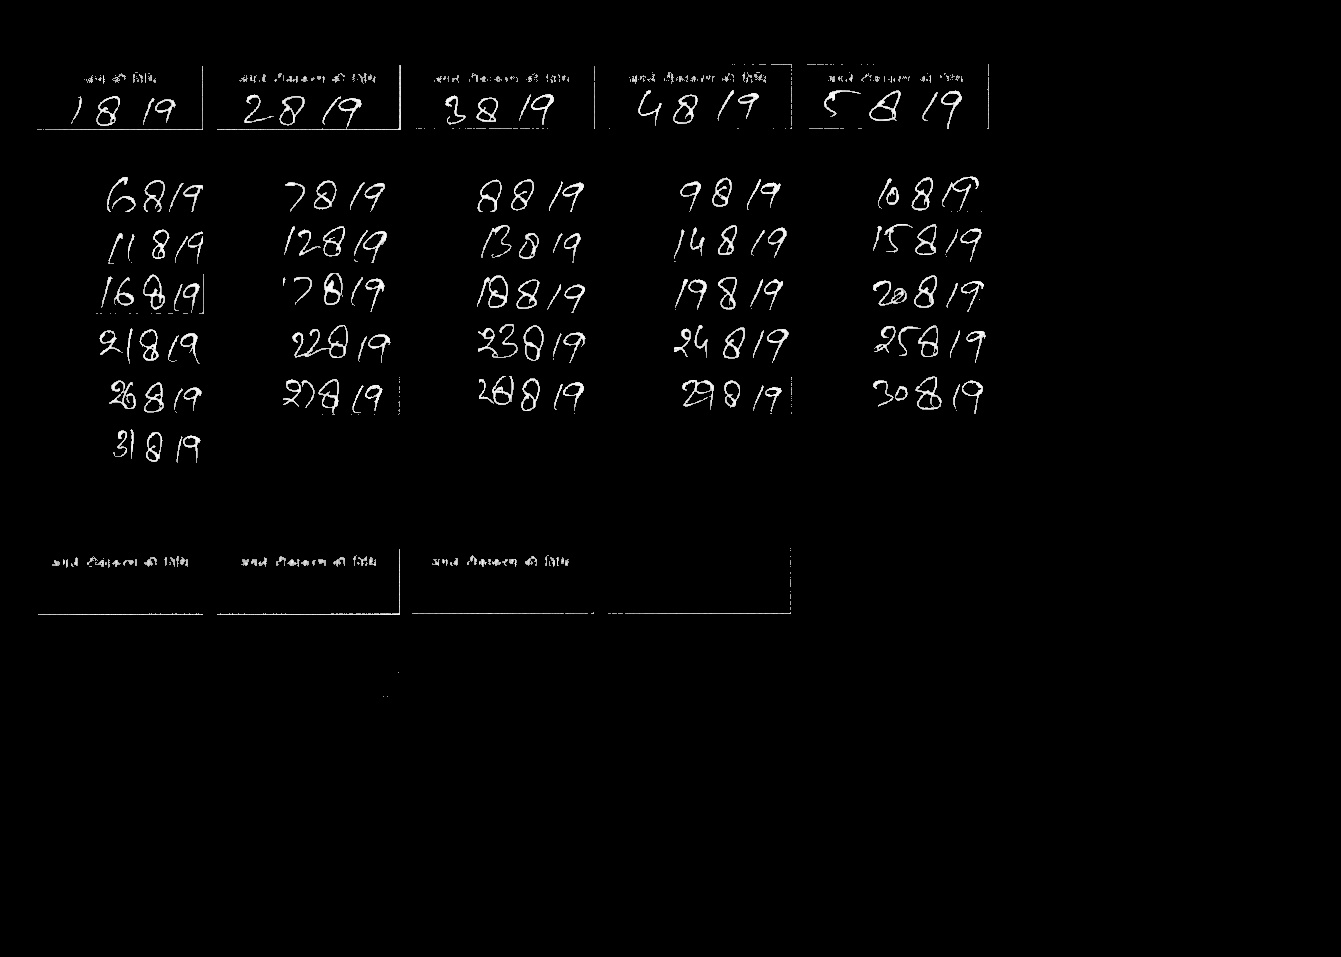 जन्म की तिथि अगले टीकाकरण की तिथि अगले टीकाकरण की तिथि अगले टीकाकरण की तिथि अगले टीकाकरण की तिथि
1 8 19 2 8 19 3 8 19 4 8 19 5 8 19
6 8 19 7 8 19 8 8 19 9 8 19 10 8 19
11 8 19 12 8 19 13 8 19 14 8 19 15 8 19
16 8 19 17 8 19 18 8 19 19 8 19 20 8 19
21 8 19 22 8 19 23 8 19 24 8 19 25 8 19
26 8 19 27 8 19 28 8 19 29 8 19 30 8 19
31 8 19
अगले टीकाकरण की तिथि अगले टीकाकरण की तिथि अगले टीकाकरण की तिथि